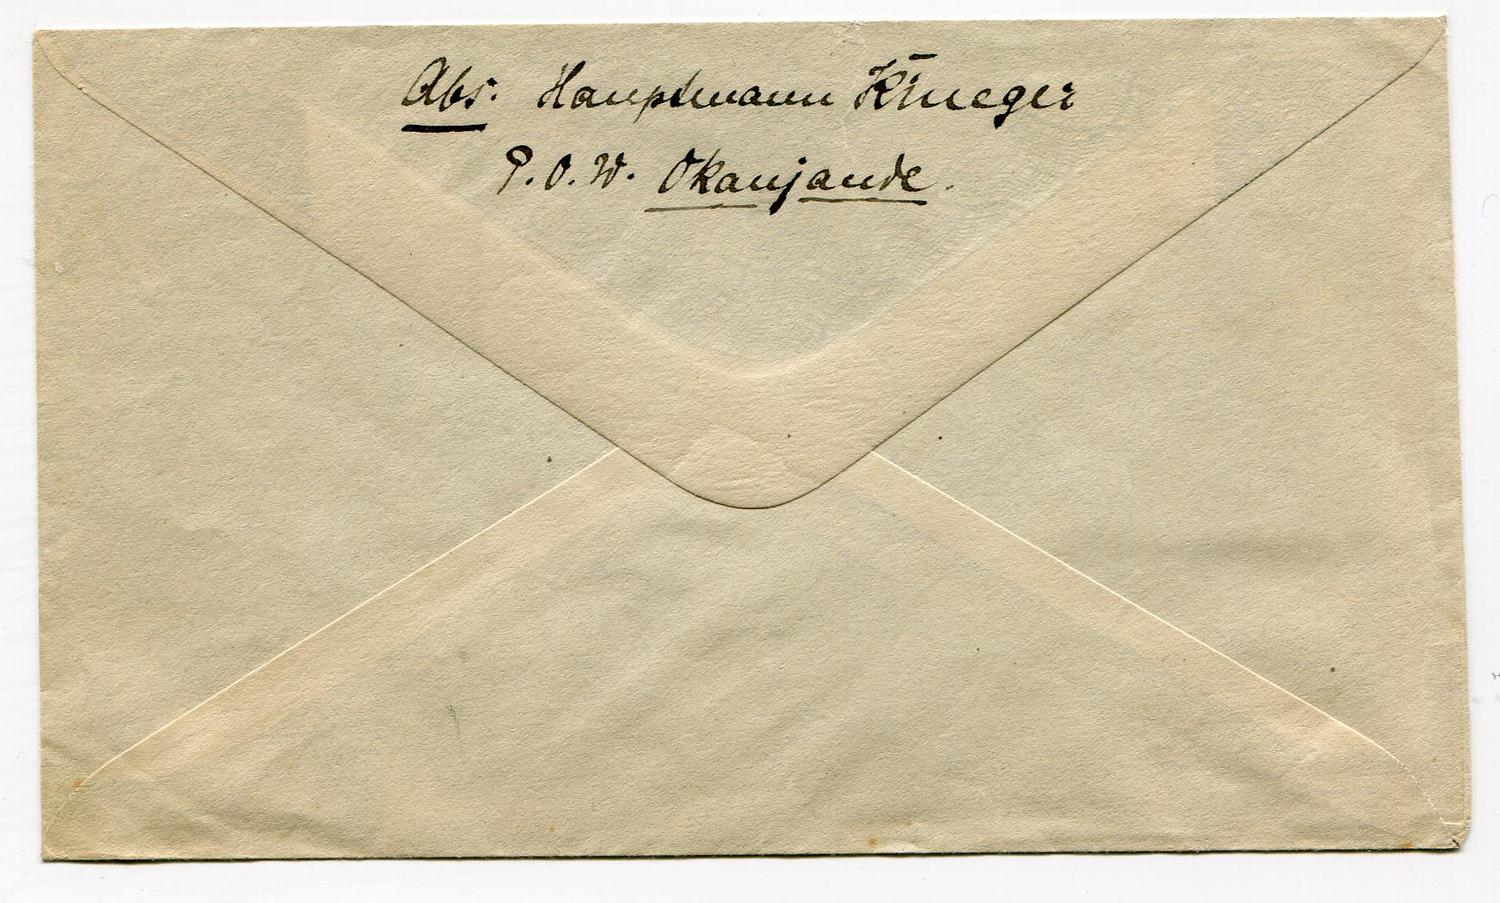 Abs. Hauptmann Krueger
P.O.W. Okanjande.